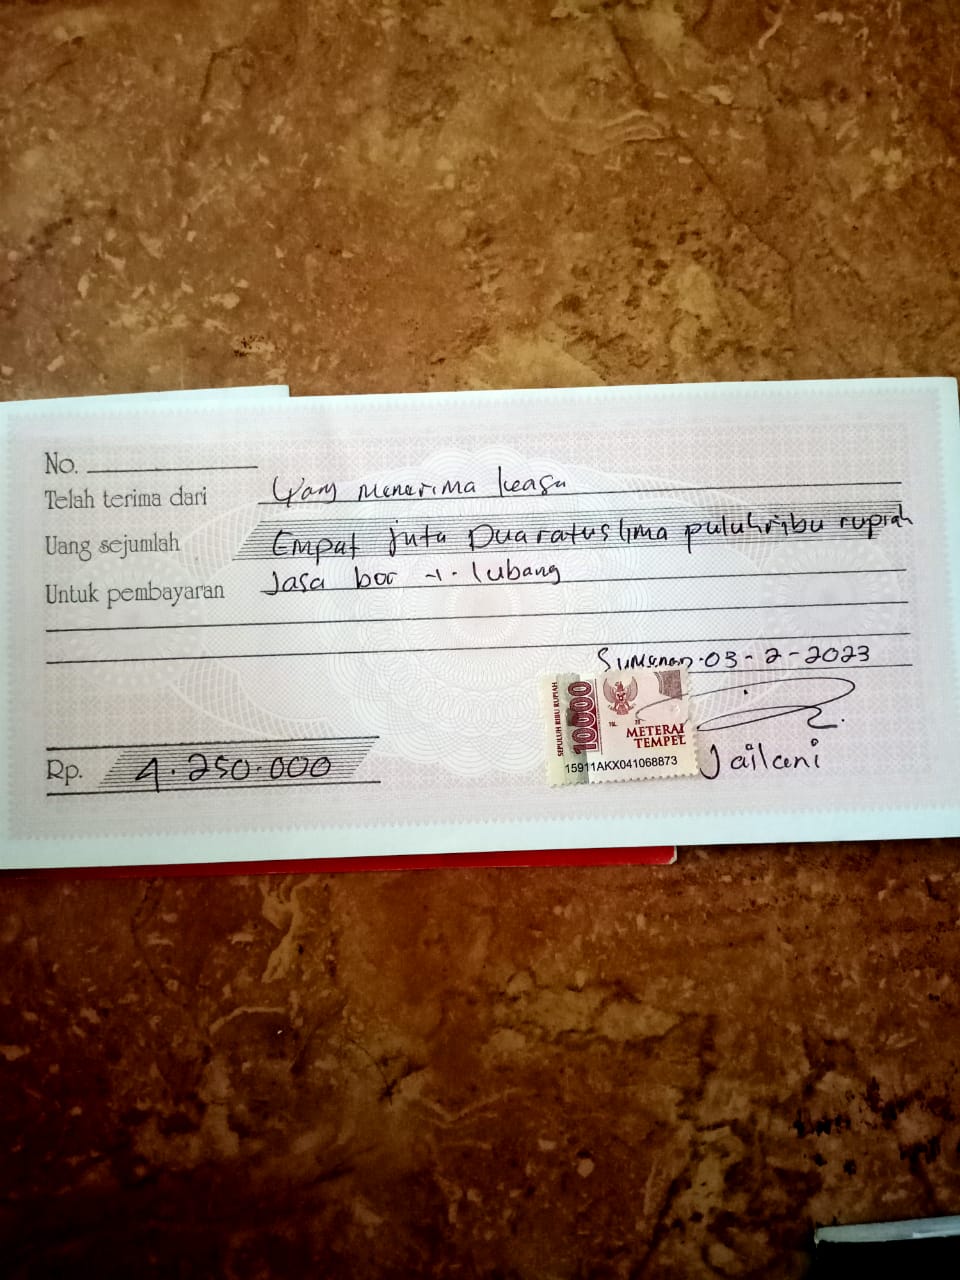 No.
Telah terima dari Yang menerima
Uang sejumlah Empat juta Dua ratus lima puluh ribu rupiah
Untuk pembayaran Jasa bor 1. lubang
Sumenep. 03 - 2 - 2023
SEPULUH RIBU RUPIAH
10000
METERAI
TEMPEL
15911AKX041068873
Jailani
Rp. 4.250.000